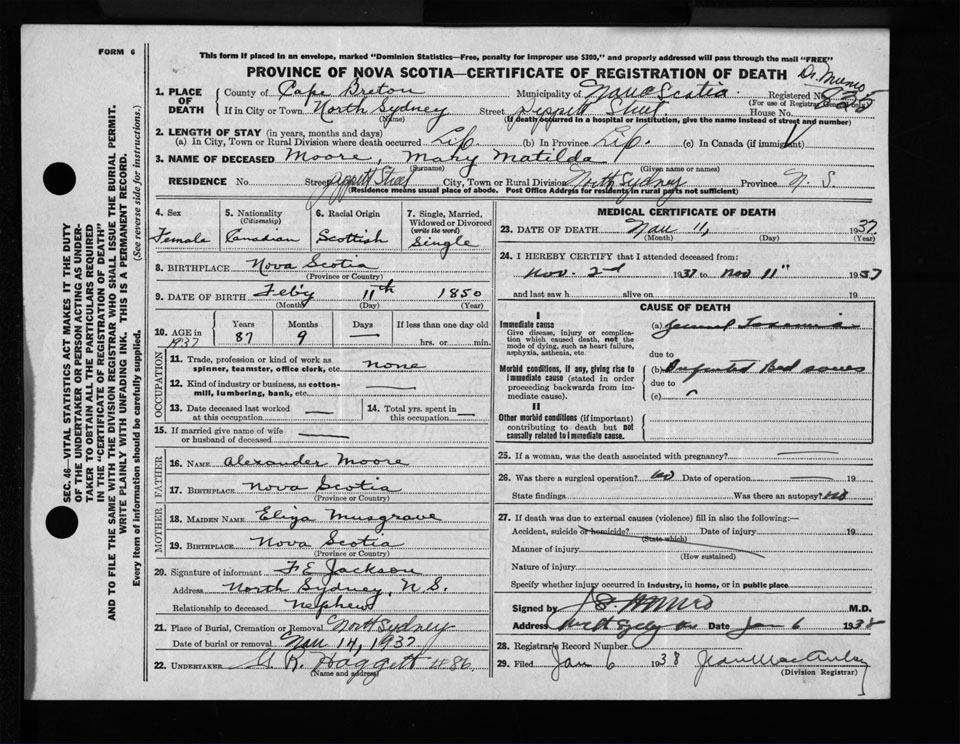 FORM 6
This form if placed in an envelope, marked "Dominion Statistics—Free, penalty for improper use $300," and properly addressed will pass through the mail "FREE"
PROVINCE OF NOVA SCOTIA—CERTIFICATE OF REGISTRATION OF DEATH
Dr. Munro
1. PLACE OF DEATH
County of Cape Breton Municipality of Nova Scotia Registered No. 835
(For use of Registrar only)
If in City or Town North Sydney Street Street House No.
(Name) (If death occurred in a hospital or institution, give the name instead of street and number)
2. LENGTH OF STAY (in years, months and days)
(a) In City, Town or Rural Division where death occurred Life (b) In Province Life. (c) In Canada (if immigrant)
3. NAME OF DECEASED Moore, Mary Matilda
(Surname) (Given name or names)
RESIDENCE No. Street Street City, Town or Rural Division North Sydney Province N. S.
(Residence means usual place of abode. Post Office Address for residents in rural parts not sufficient)
4. Sex Female
5. Nationality (Citizenship) Canadian
6. Racial Origin Scottish
7. Single, Married, Widowed or Divorced (write the word) Single
8. BIRTHPLACE Nova Scotia
(Province or Country)
9. DATE OF BIRTH Feb'y 11th 1850
(Month) (Day) (Year)
10. AGE in 1937 Years 87 Months 9 Days — If less than one day old hrs. or min.
OCCUPATION
11. Trade, profession or kind of work as spinner, teamster, office clerk, etc. none
12. Kind of industry or business, as cotton-mill, lumbering, bank, etc. —
13. Date deceased last worked at this occupation —
14. Total yrs. spent in this occupation —
15. If married give name of wife or husband of deceased —
FATHER
16. NAME Alexander Moore
17. BIRTHPLACE Nova Scotia
(Province or Country)
MOTHER
18. MAIDEN NAME Eliza Musgrave
19. BIRTHPLACE Nova Scotia
(Province or Country)
20. Signature of informant F E Jackson
Address North Sydney, N. S.
Relationship to deceased Nephew
21. Place of Burial, Cremation or Removal North Sydney
Date of burial or removal Nov 14, 1937
22. UNDERTAKER
(Name and address)
MEDICAL CERTIFICATE OF DEATH
23. DATE OF DEATH Nov 11, 1937
(Month) (Day) (Year)
24. I HEREBY CERTIFY that I attended deceased from:
Nov. 2nd 1937 to Nov 11" 1937
and last saw h alive on 19
CAUSE OF DEATH
I
Immediate cause (a) General Toxaemia
Give disease, injury or complication which caused death, not the mode of dying, such as heart failure, asphyxia, asthenia, etc.
due to
Morbid conditions, if any, giving rise to immediate cause (stated in order proceeding backwards from immediate cause).
(b) Infected Bed sores
due to
(c)
II
Other morbid conditions (if important) contributing to death but not causally related to immediate cause.
25. If a woman, was the death associated with pregnancy? —
26. Was there a surgical operation? No Date of operation — 19
State findings Was there an autopsy? No
27. If death was due to external causes (violence) fill in also the following:—
Accident, suicide or homicide? Date of injury 19
(State which)
Manner of injury
(How sustained)
Nature of injury
Specify whether injury occurred in industry, in home, or in public place
Signed by Munro M.D.
Address Date Jan 6 1938
28. Registrar's Record Number
29. Filed Jan 6 1938
(Division Registrar)
SEC. 46—VITAL STATISTICS ACT MAKES IT THE DUTY
OF THE UNDERTAKER OR PERSON ACTING AS UNDER-
TAKER TO OBTAIN ALL THE PARTICULARS REQUIRED
IN THE "CERTIFICATE OF REGISTRATION OF DEATH"
AND TO FILE THE SAME WITH THE DIVISION REGISTRAR WHO SHALL ISSUE THE BURIAL PERMIT.
WRITE PLAINLY WITH UNFADING INK. THIS IS A PERMANENT RECORD.
Every item of information should be carefully supplied. (See reverse side for instructions.)